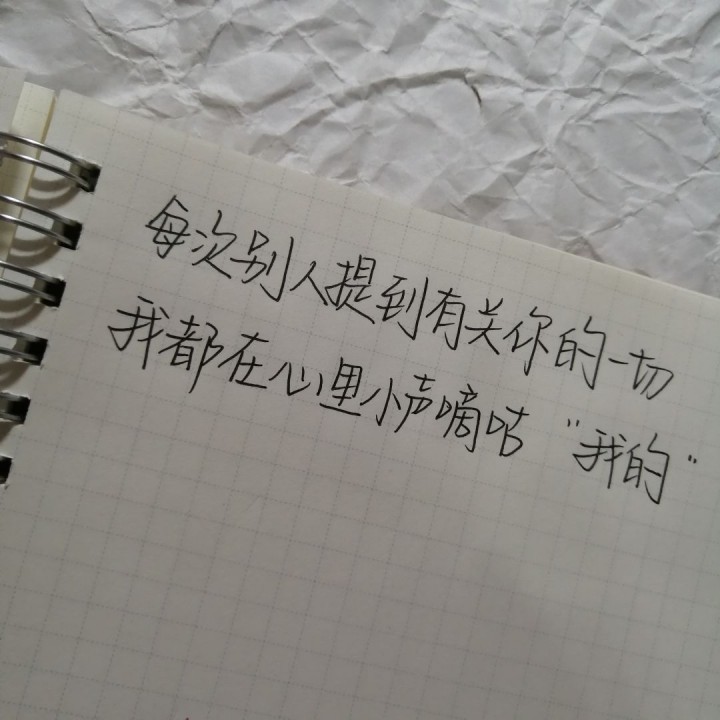 每次别人提到有关你的一切
我都在心里小声嘀咕 "我的"